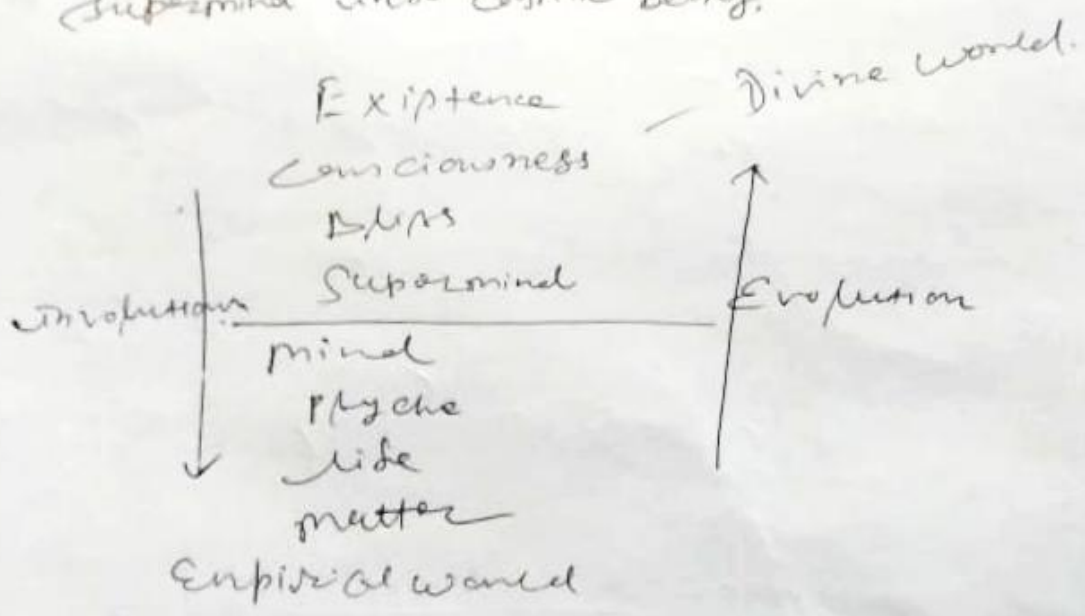 Supermind
Being.
Existence
Divine world.
Consciousness
Bliss
Supermind
Involution
Evolution
mind
Psyche
life
matter
Empirical world